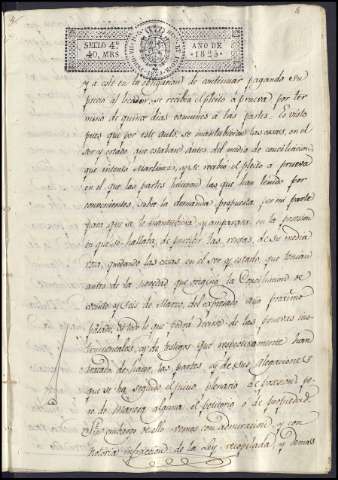 6
SELLO 4º
40. MRS
AÑO DE
1825
y a este en la obligacion de continuar pagando su
precio al locador, se reciba el pleito á prueva por ter
mino de quince dias comunes á las partes. Es visto
pues que por este auto, se mantubieron las cosas, en el
ser y estado, que estaban antes del medio de conciliacion
que intentó Martinez, y se recibió el pleito á prueva
en el que las partes hicieron las que han tenido por
convenientes, sobre la demanda propuesta por mi parte
para que se le mantubiera y amparara en la posesion
en que se hallaba, de percibir las rentas, de su
quedando las cosas en el ser y estado, que tenian
antes de la novedad que originó la Conciliacion de
veinte y seis de Marzo, del expresado año proximo
pasado, y por lo que podrá decirse de las pruevas ins
trumentales, y de testigos que respectivamente han
las partes, y de sus alegaciones
que se ha seguido el juicio plenario de posesion pe
ro de manera alguna el petitorio ó de propiedad
Sin embargo de ello vemos con admiracion y con
notoria infraccion de la Ley recopilada, y demas